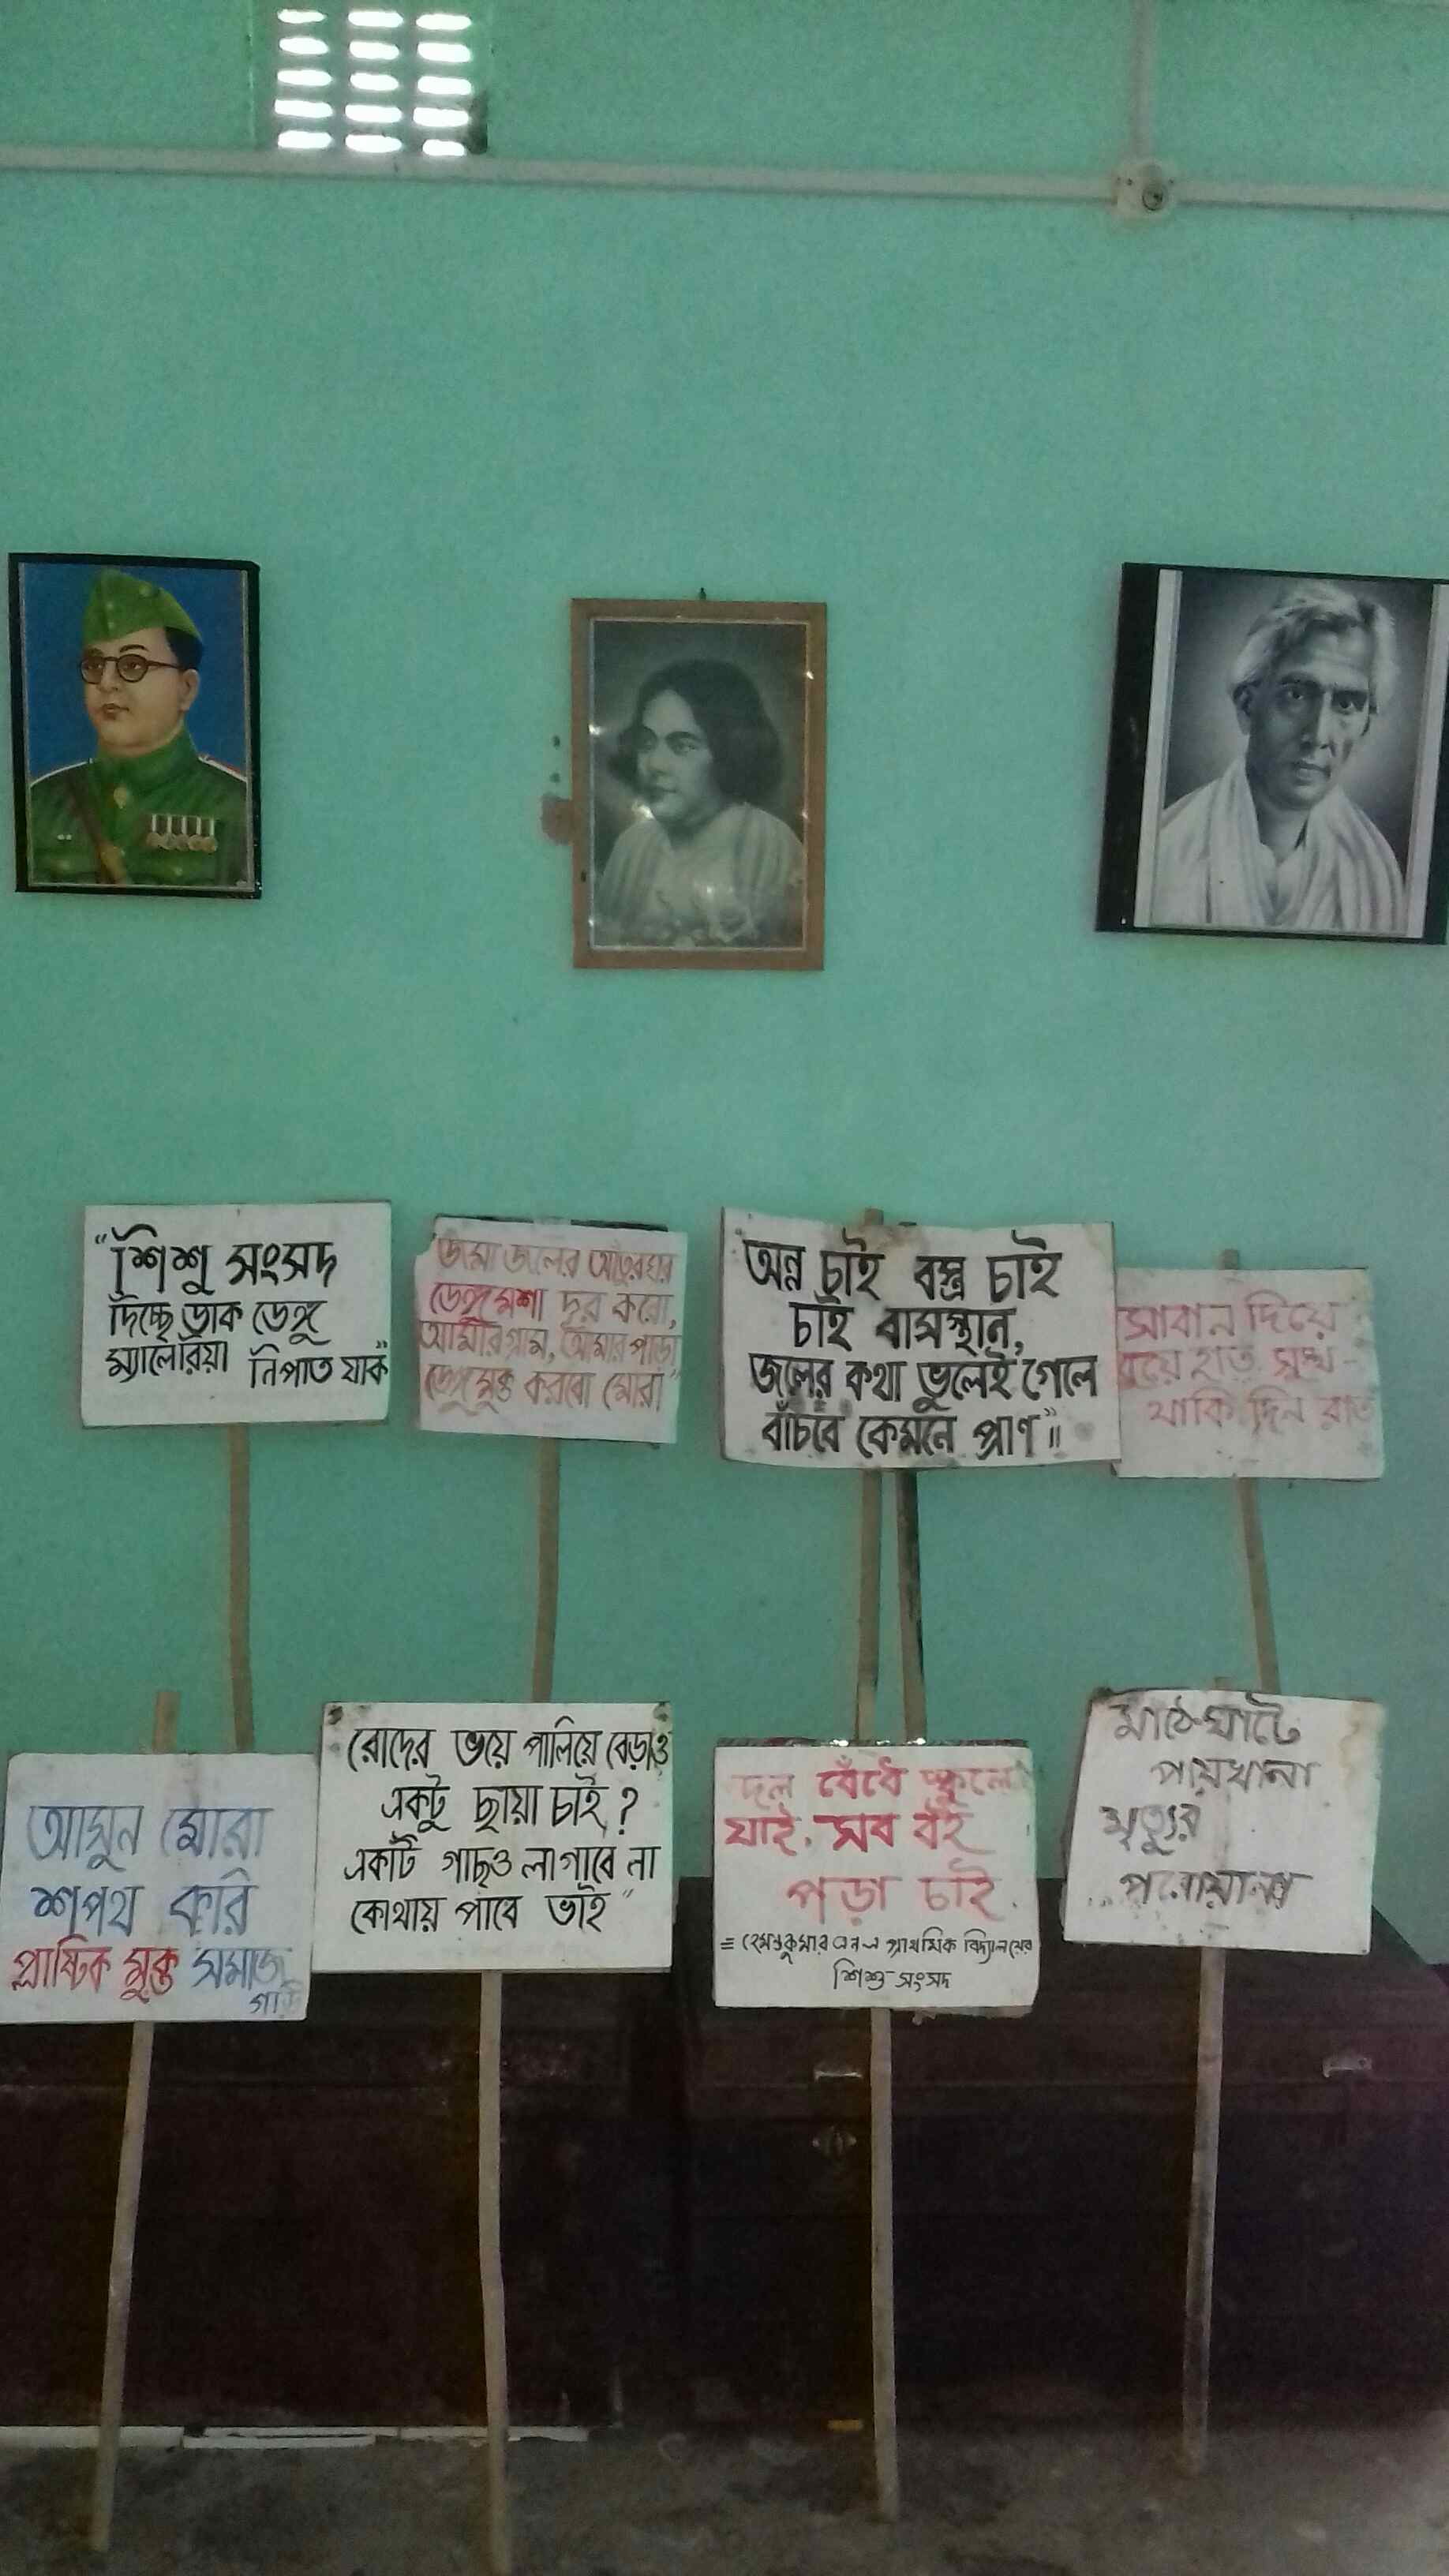 “শিশু সংসদ
দিচ্ছে ডাক ডেঙ্গু
ম্যালেরিয়া নিপাত যাক”
“জমা জলের আঁতুরঘর
ডেঙ্গু মশা দূর করো,
আমার গ্রাম, আমার পাড়া
ডেঙ্গু মুক্ত করবো মোরা”
“অন্ন চাই বস্ত্র চাই
চাই বাসস্থান,
জলের কথা ভুলেই গেলে
বাঁচবে কেমনে প্রাণ”॥
সাবান দিয়ে
হাত সুস্থ
থাকি দিন রাত
আসুন মোরা
শপথ করি
প্লাষ্টিক মুক্ত সমাজ
গড়ি
“রোদের ভয়ে পালিয়ে বেড়াও
একটু ছায়া চাই?
একটি গাছও লাগাবে না
কোথায় পাবে ভাই”
দল বেঁধে স্কুলে
যাই. সব বই
পড়া চাই.
হেমন্তকুমার প্রাথমিক বিদ্যালয়ের
শিশু-সংসদ
মাঠে-ঘাটে
পায়খানা
মৃত্যুর
পরোয়ানা